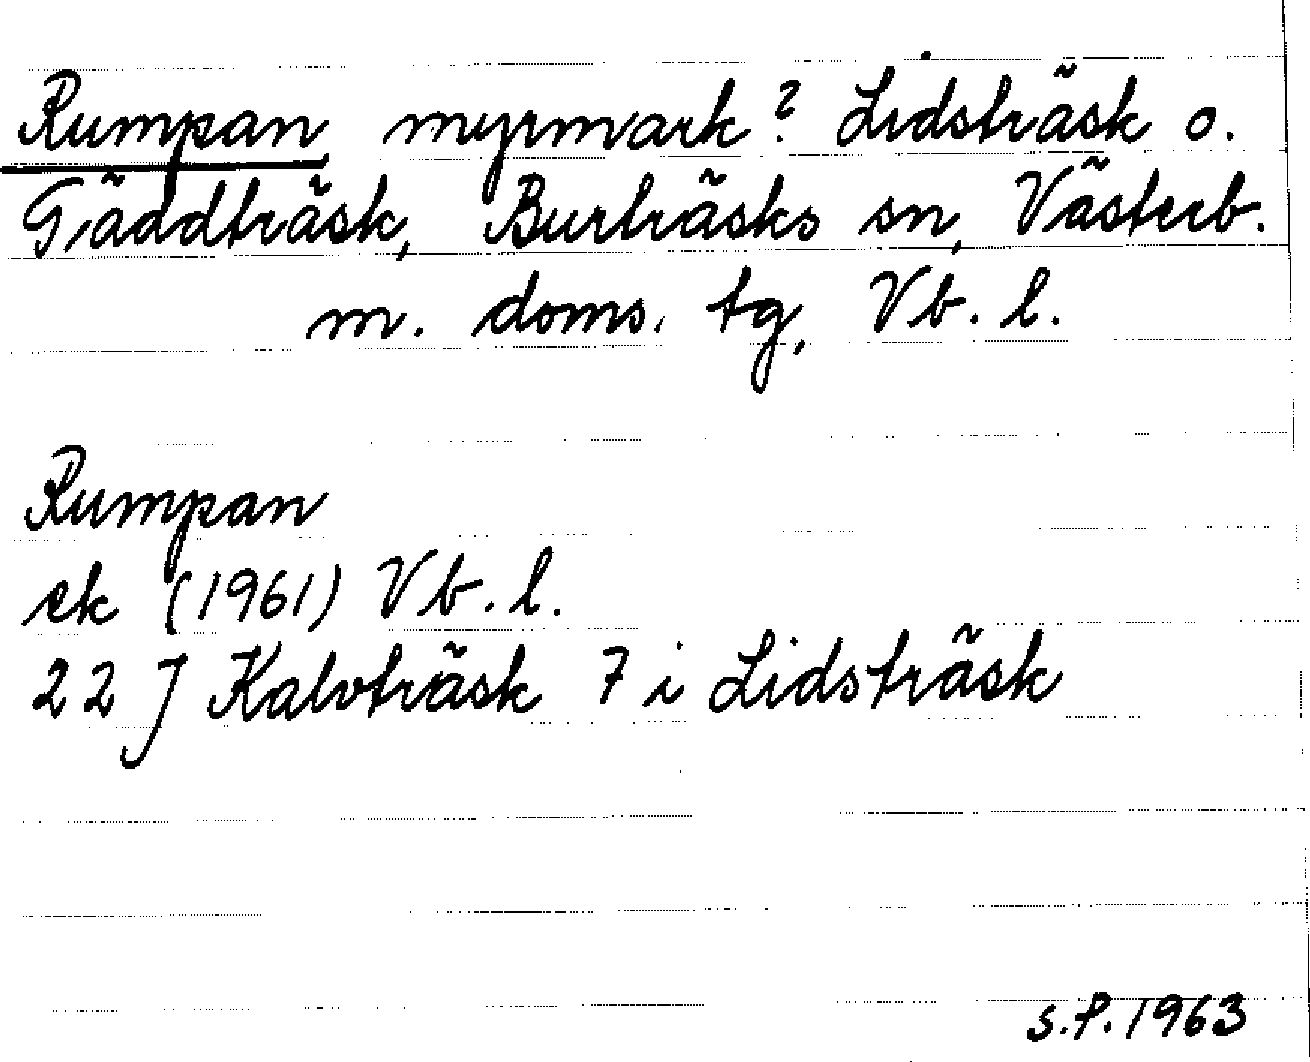 Rumpan, myrmark? Lidsträsk o.
Gäddträsk, Burträsks sn, Västerb.
m. doms. tg, Vb. l.
Rumpan
ek (1961) Vb. l.
22 J Kalvträsk 7 i Lidsträsk
S.P. 1963